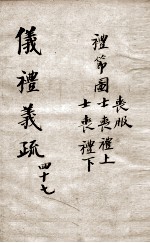 喪服
禮節圖士喪禮上
士喪禮下
儀禮義疏
四十七